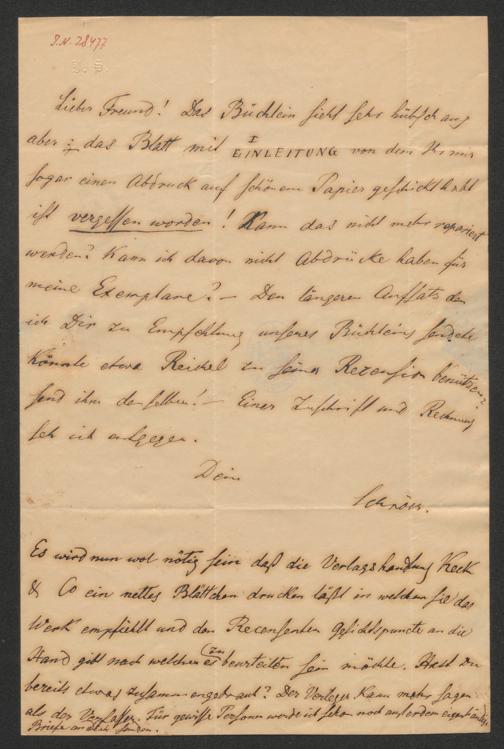 I.N. 28477
Lieber Freund! Das Büchlein sieht sehr hübsch aus
aber : das Blatt mit I EINLEITUNG von dem Du mir
sogar einen Abdruck auf schönem Papier geschickt hast
ist vergessen worden! Kann das nicht mehr repariert
werden? Kann ich davon nicht Abdrücke haben für
meine Exemplare? – Den längeren Aufsatz den
ich Dir zu Empfehlung unseres Büchleins sendete
könnte etwa Reichel zu seiner Rezension benützen?
send ihm denselben! – Einer Zuschrift und Rechnung
seh ich entgegen.
Dein
Schröer.
Es wird nun wol nötig sein daß die Verlagshandlung Keck
& Co ein nettes Blättchen drucken läßt in welchem sie das
Werk empfiehlt und den Recensenten Gesichtspuncte an die
Hand gibt nach welchen es zu beurteilen sein möchte. Hast Du
bereits etwas zusammengebraut? Der Verleger kann mehr sagen
als der Verfasser. Für gewisse Personen werde ich schon noch außerdem
Briefe an dich senden.